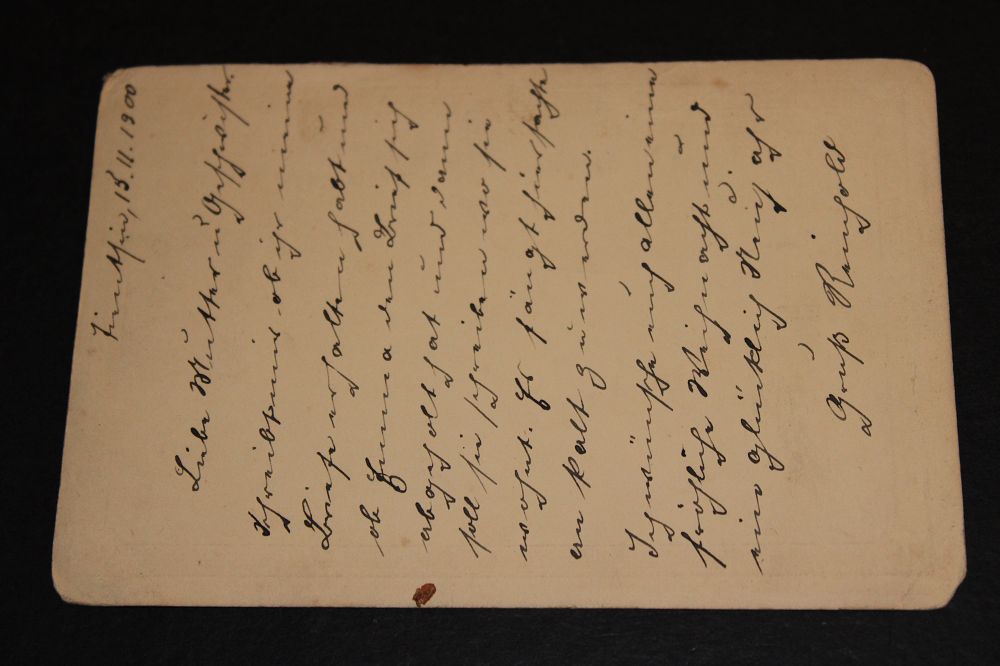 Tientsin, 13.11.1900
Liebe Mutter u Geschwister.
Schreibt mir ob ihr meine
Briefe erhalten habt und
ob Emma den Brief sich
abgeholt hat und dann
soll sie schreiben wo sie
wohnt. Es fängt hier sachte
an kalt zu werden.
Ich wünsche euch allen eine
fröhliche Weihnacht und
ein glücklich Neujahr
Gruß Reinhold